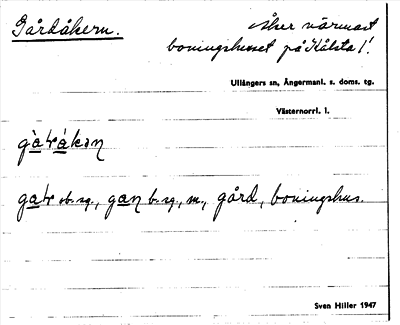 Gårdåkern.
åker närmast
boningshuset på Kålsta 1/.
Ullångers sn, Ångermanl. s. doms. tg.
Västernorrl. l.
ob. sg., b. sg., m., gård, boningshus.
Sven Hiller 1947